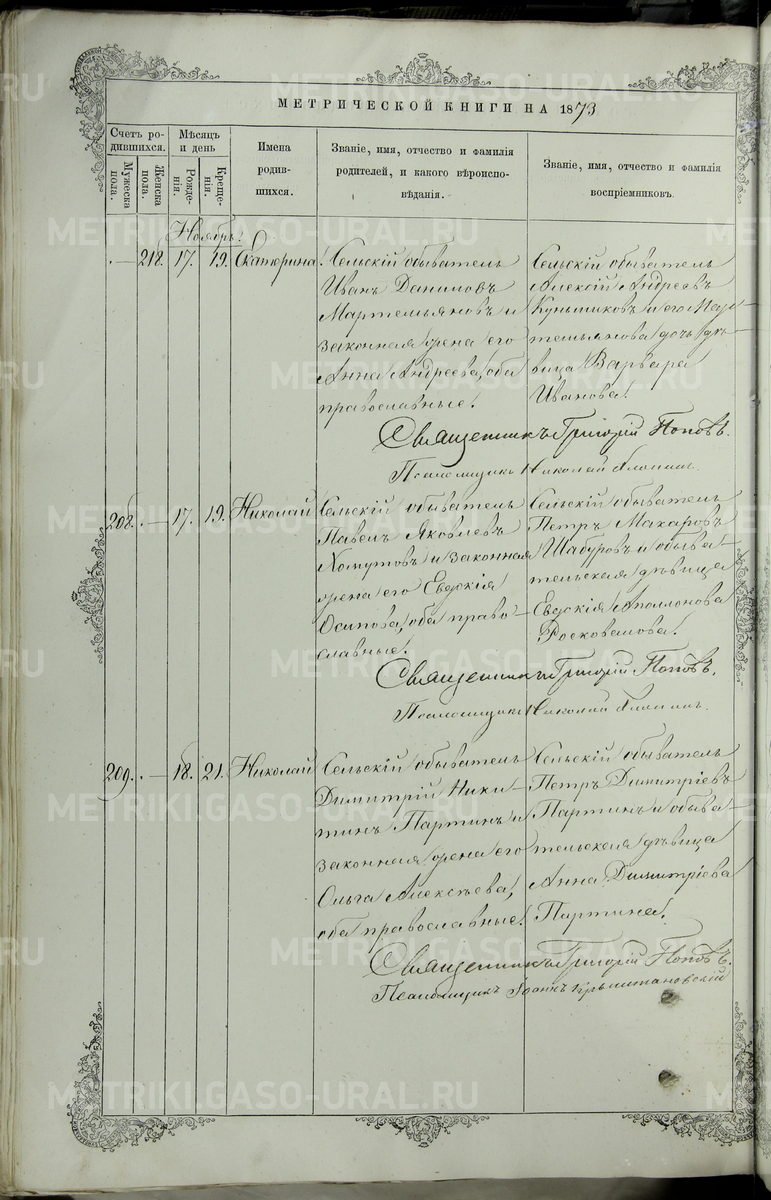 МЕТРИЧЕСКОЙ КНИГИ НА 1873
Счетъ ро-
дившихся.
Мужеска
пола.
Женска
пола.
Мѣсяцъ
и день
Рожде-
нія.
Креще-
нія.
Имена
родив-
шихся.
Званіе, имя, отчество и фамилія
родителей, и какого вѣроиспо-
вѣданія.
Званіе, имя, отчество и фамилія
воспріемниковъ.
Ноябрь!
218. 17. 19. Екатерина!
Сельскій обыватель
Иванъ Даниловъ
Мартемьяновъ и
законная жена его
Анна Андреева, оба
православные!
Сельскій обыватель
Алексій Андреевъ
и его Мар-
темьянова дочь дѣ-
вица Варвара
Иванова!
Священникъ Григорій Поповъ.
Псаломщикъ Николай
208. 17. 19. Николай
Сельскій обыватель
Павелъ Яковлевъ
Хомутовъ и законная
жена его Евдокія
Осипова, оба право-
славные!
Сельскій обыватель
Петръ Макаровъ
Шабуровъ и обыва-
тельская дѣвица
Евдокія Аполлонова
Священникъ Григорій Поповъ.
Псаломщикъ Николай
209. 18. 21. Николай
Сельскій обыватель
Димитрій Ники-
тинъ Партинъ и
законная жена его
Ольга Алексѣева,
оба православные!
Сельскій обыватель
Петръ Димитріевъ
Партинъ и обыва-
тельская дѣвица
Анна Димитріева
Партина!
Священникъ Григорій Поповъ.
Псаломщикъ Іоаннъ
METRIKI.GASO-URAL.RU